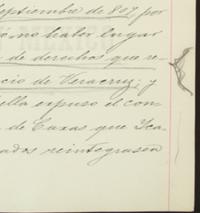 septiembre de 809 por
no haber lugar
de derechos que re-
cio de Veracruz; y
ella expuso el con-
de Casas que Ica-
ados reintegrasen